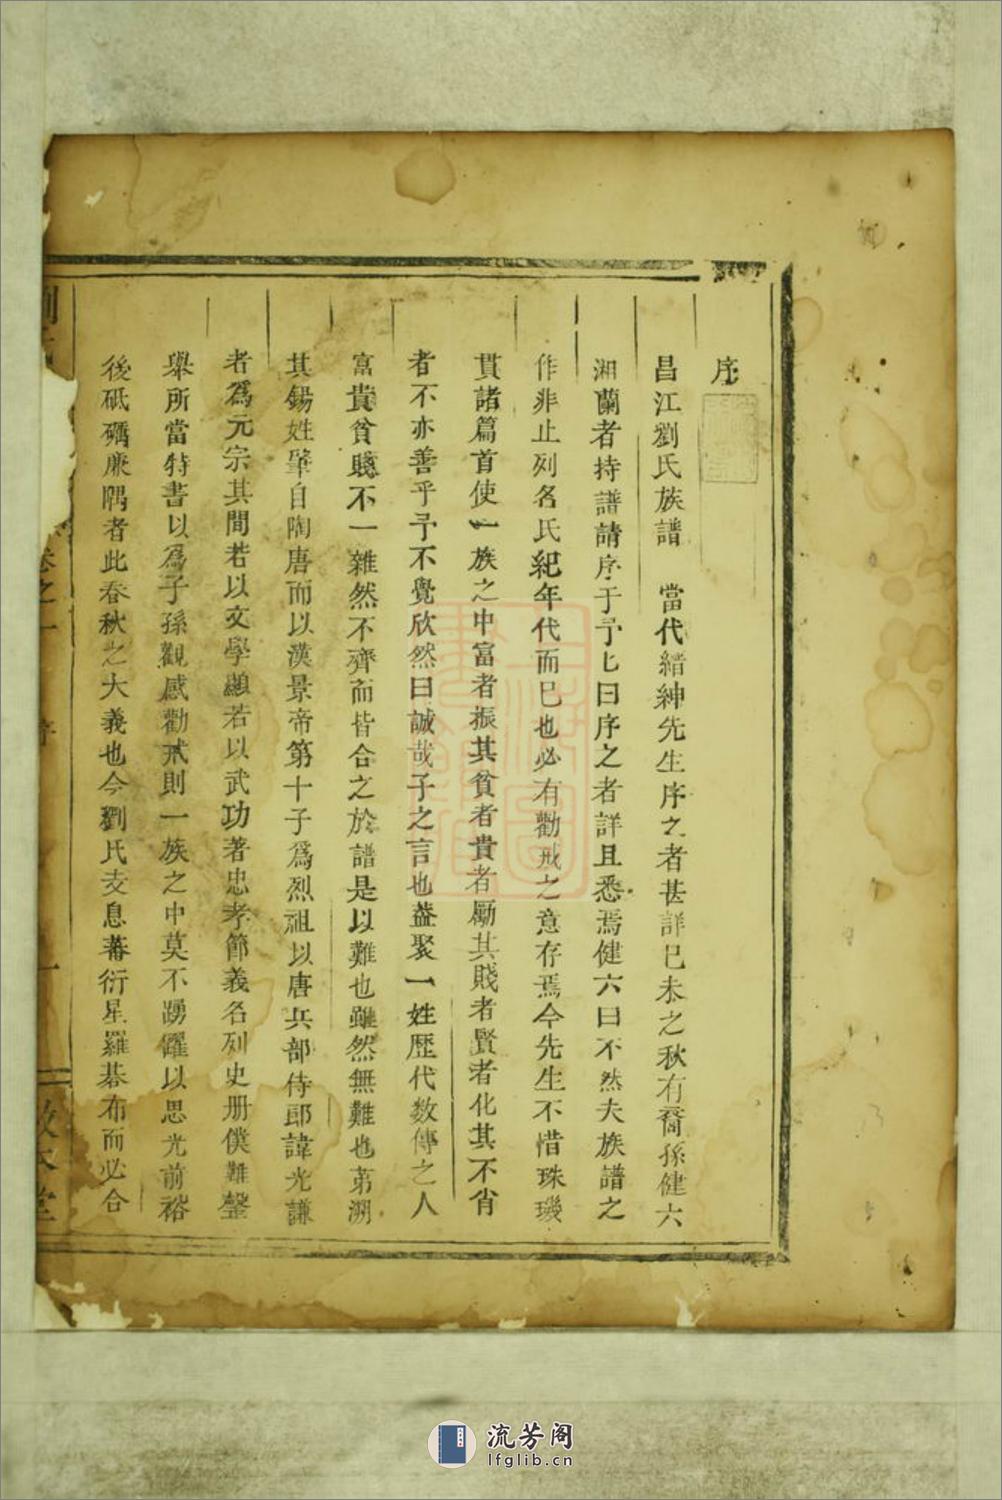 序
昌江劉氏族譜　當代縉紳先生序之者甚詳已未之秋有裔孫健六
湘蘭者持譜請序于予匕曰序之者詳且悉焉健六曰不然夫族譜之
作非止列名氏紀年代而已也必有勸戒之意存焉今先生不惜珠璣
貫諸篇首使一族之中富者振其貧者貴者勵其賤者賢者化其不肖
者不亦善乎予不覺欣然曰誠哉子之言也葢聚一姓歴代数傳之人
富貴貧賤不一雜然不齊而皆合之於譜是以難也雖然無難也苐溯
其錫姓肇自陶唐而以漢景帝第十子爲烈祖以唐兵部侍郎諱光謙
者爲元宗其間若以文學顯若以武功著忠孝節義名列史册僕難罄
舉所當特書以爲子孫觀感勸戒則一族之中莫不踴躍以思光前裕
後砥礪廉隅者此春秋之大義也今劉氏支息蕃衍星羅碁布而必合
卷之一 序 一
流芳阁
lfglib.cn